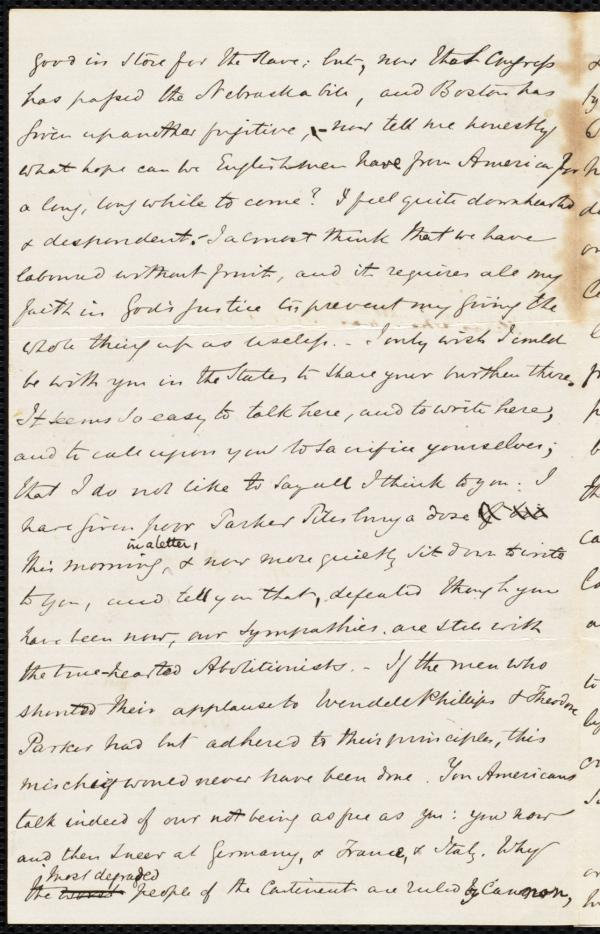 good in store for the slave: but, now that Congress
has passed the Nebraska bill, and Boston has
given up another fugitive, - now tell me honestly
what hope can we Englishmen have from America for
a long, long while to come? I feel quite downhearted
& despondent. - I almost think that we have
laboured without fruit, and it requires all my
faith in God's justice to prevent my giving the
whole thing up as useless. - I only wish I could
be with you in the States to share your burthen there.
It seems so easy to talk here, and to write here,
and to call upon you to sacrifice yourselves;
that I do not like to say all I think to you. I
have given poor Parker Pillsbury a dose of
in a letter,
this morning, & now more quietly sit down to write
to you, and tell you that, defeated though you
have been now, our sympathies are still with
the true-hearted Abolitionists. - If the men who
shouted their applause to Wendell Phillips & Theodore
Parker had but adhered to their principles, this
mischief would never have been done. You Americans
talk indeed of our not being as free as you: you now
and then sneer at Germany, & France, & Italy. Why
most degraded
the worst people of the Continent are ruled by Cannon,